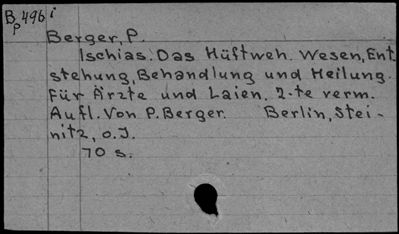 Bp 496 i
Berger, P.
Ischias. Das Hüftweh. Wesen, Ent-
stehung, Behandlung und Heilung.
Für Ärzte und Laien. 2-te verm.
Aufl. Von P. Berger. Berlin, Stei-
nitz, o. J.
70 s.